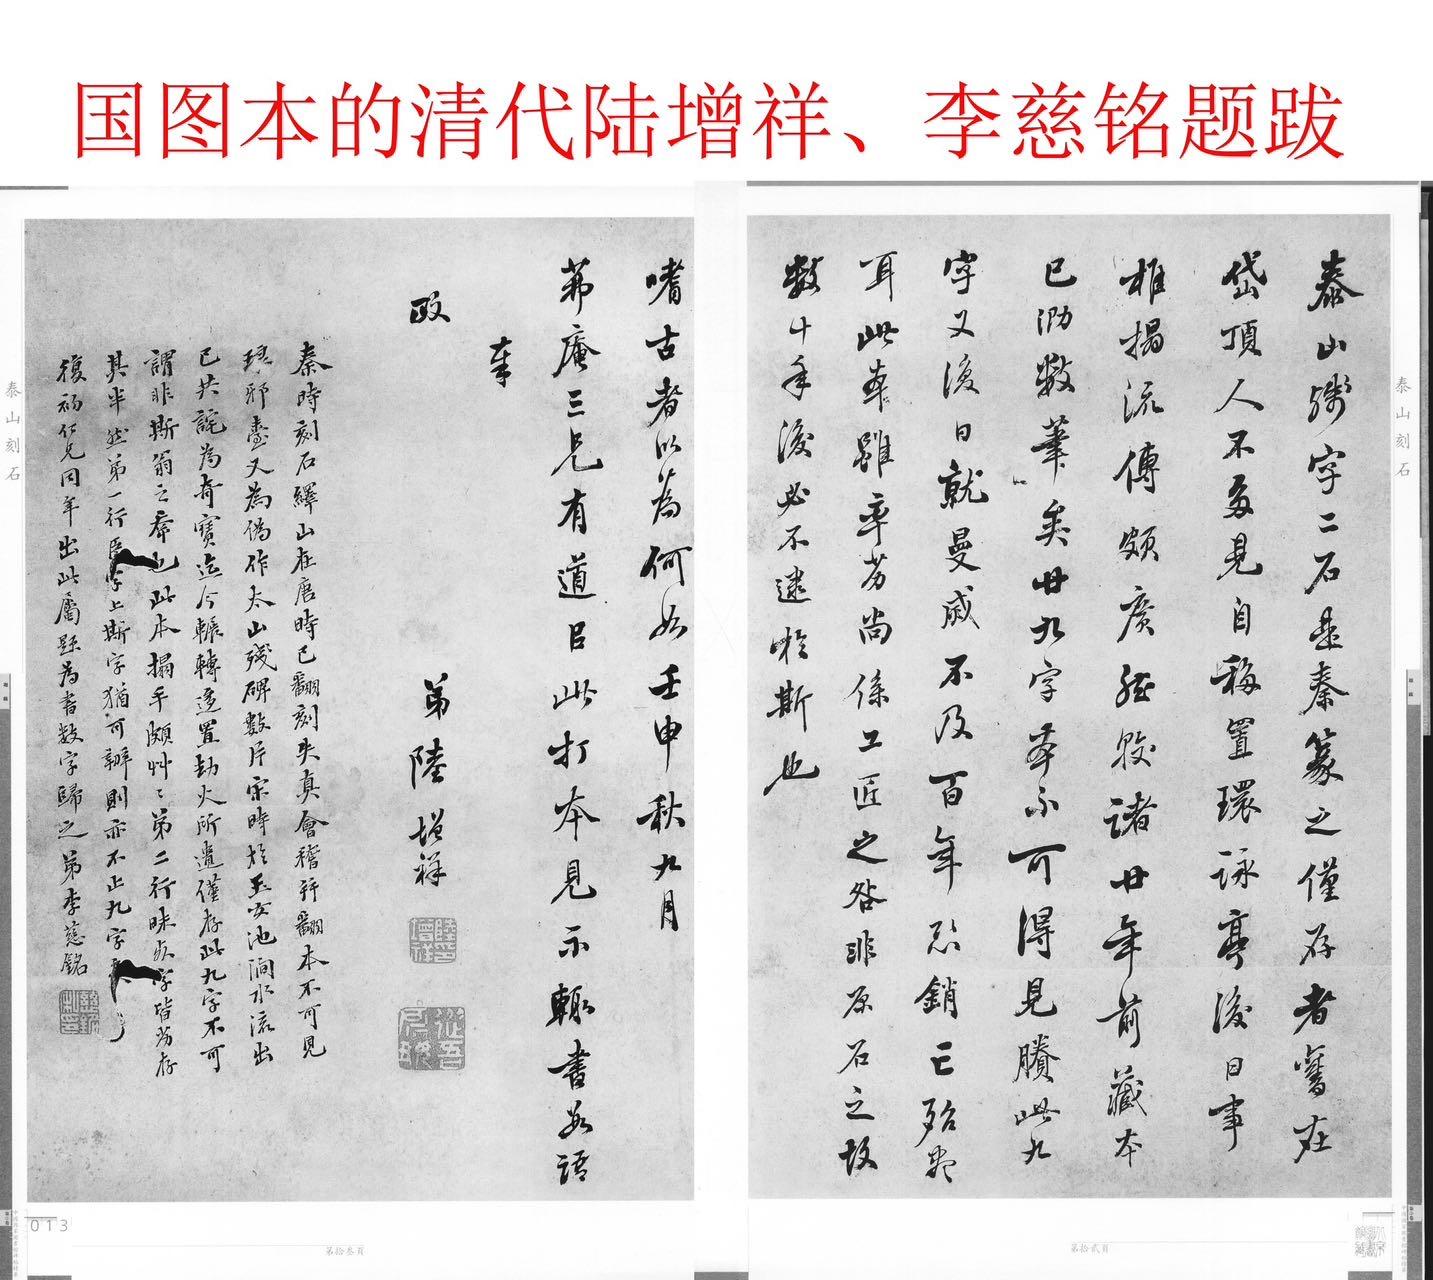 国图本的清代陆增祥、李慈铭题跋
泰山残字二石是秦篆之僅存者舊在
岱頂人不多見自移置環詠亭後日事
椎搨流傳頗廣然較諸廿年前藏本
已泐數筆矣廿九字本不可得見賸此九
字又後日就曼滅不及百年恐銷亡殆盡
耳此本雖率劣尚係工匠之咎非原石之故
數十年後必不逮斯也
嗜古者以為何如壬申秋九月
茀庵三兄有道以此打本見示輒書數語
奉
政
弟陸增祥
秦時刻石繹山在唐時已翻刻失真會稽并翻本不可見
琅邪臺又為偽作太山殘碑數片宋時於玉女池澗水流出
已共詫為奇寶迄今輾轉迻置劫火所遺僅存此九字不可
謂非斯翁之本也此本搨手頗艸艸第二行昧死字皆為存
其半然第一行臣字上斯字猶可辨則亦不止九字
復初仁兄同年出此屬題為書數字歸之弟李慈銘
泰山刻石
泰山刻石
013
第拾叁頁
第拾貳頁